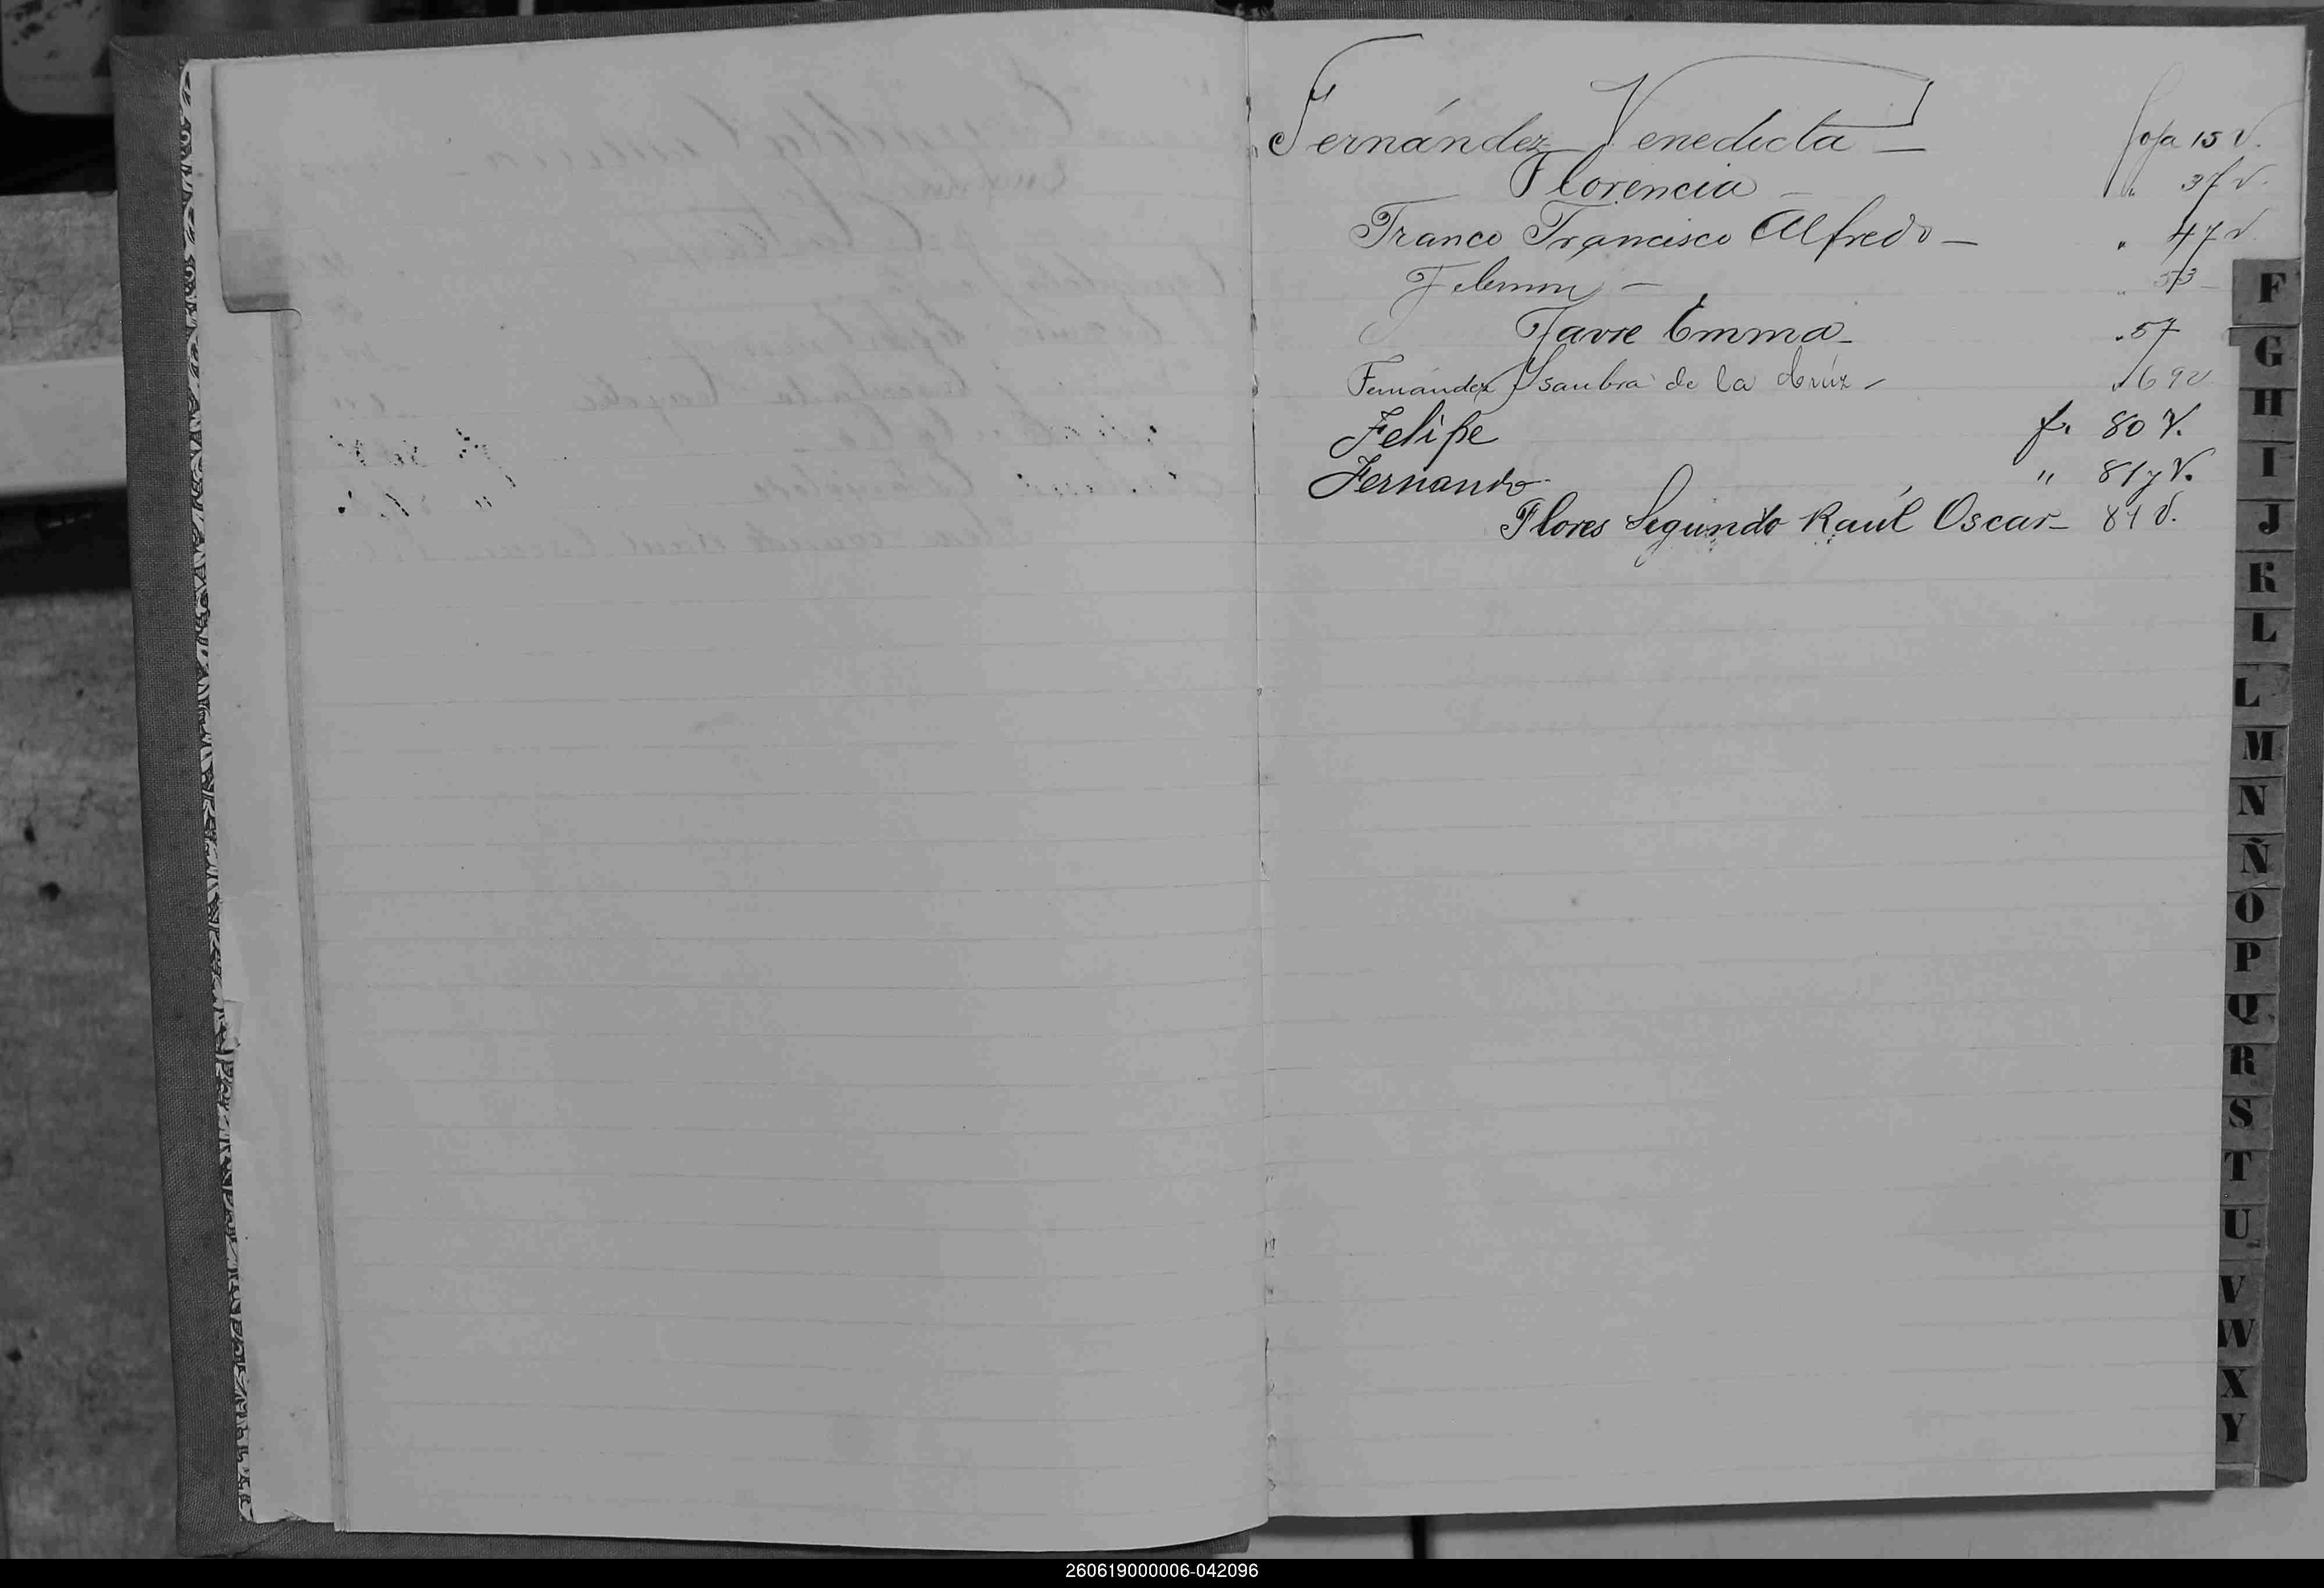 Fernández Venedicta — foja 15 v.
Florencia — " 37 v.
Franco Francisco Alfredo — " 47 v
Filemon — " 53 —
Favre Emma — " 57
Fernández Ysaubra de la Crúz — " 69 v
Felipe f. 80 V.
Fernando " 81 y V.
Flores Segundo Raúl Oscar — 84 v.
F
G
H
I
J
K
L
L
M
N
Ñ
O
P
Q
R
S
T
U
V
W
X
Y
260619000006-042096